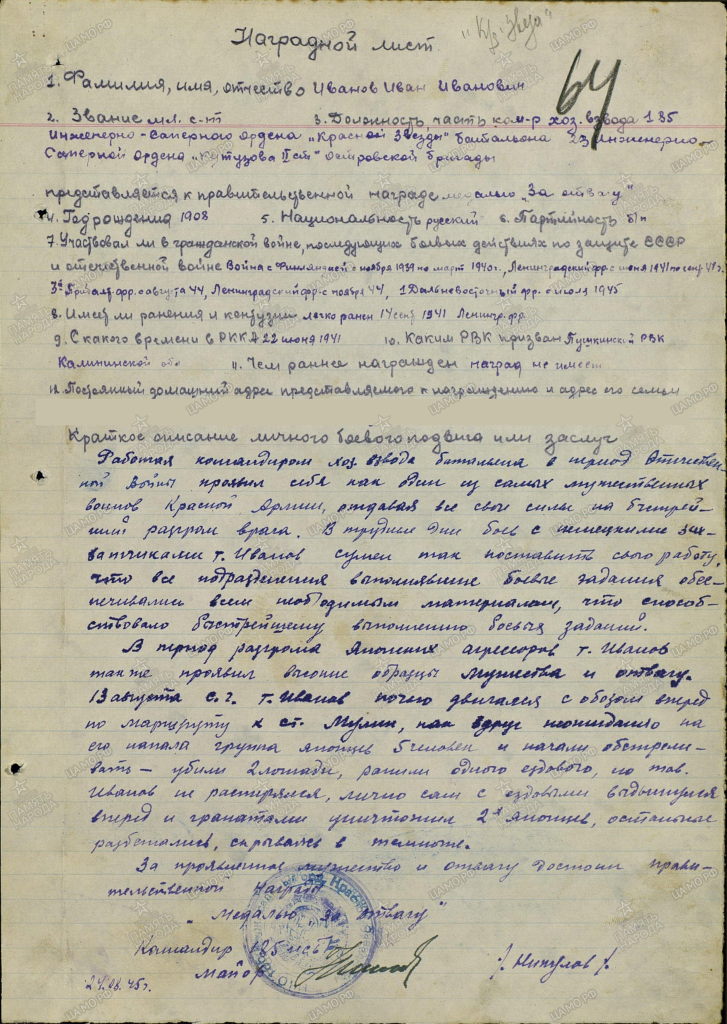 "Кр. Звезда"
Наградной лист
64
1. Фамилия, имя, отчество Иванов Иван Иванович
2. Звание мл. с-нт 3. Должность, часть ком-р хоз. взвода 185
Инженерно-Саперного ордена „Красной Звезды" батальона 23 инженерно-
Саперной Ордена „Кутузова II ст" бригады
представляется к правительственной награде медалью „За отвагу"
4. Год рождения 1908 5. Национальность русский 6. Партийность б/п
7. Участвовал ли в гражданской войне, последующих боевых действиях по защите СССР
и отечественной войне Война с Финляндией с ноября 1939 по март 1940 г., Ленинградский фр с июня 1941 по
3й Прибалт. фр. с августа 44, Ленинградский фр. с ноября 44, 1 Дальневосточный фр. с июля 1945
8. Имеет ли ранения и контузии легко ранен 14 сент 1941 Ленингр. фр.
9. С какого времени в РККА 22 июня 1941 10. Каким РВК призван Пушкинский РВК
Калининской обл 11. Чем раннее награжден наград не имеет
12. Постоянный домашний адрес представляемого к награждению и адрес его семьи
Краткое описание личного боевого подвига или заслуг
Работая командиром хоз. взвода батальона в период Отечествен-
ной Войны проявил себя как один из самых мужественных
воинов Красной Армии, отдавая все свои силы на быстрей-
ший разгром врага. В трудные дни боев с немецкими зах-
ватчиками т. Иванов сумел так поставить свою работу,
что все подразделения выполнявшие боевые задания обес-
печивались всем необходимым материалом, что способ-
ствовало быстрейшему выполнению боевых заданий.
В период разгрома японских агрессоров т. Иванов
также проявил высокие образцы мужества и отвагу.
13 августа с. г. т. Иванов ночью двигался с обозом вперед
по маршруту к ст. Мулин, как вдруг неожиданно на
его напала группа японцев 5 человек и начали обстрели-
вать — убили 2 лошади, ранили одного ездового, но тов.
Иванов не растерялся, лично сам с ездовыми выдвинулся
вперед и гранатами уничтожил 2х японцев, остальные
разбежались, скрываясь в темноте.
За проявленное мужество и отвагу достоин прави-
тельственной награды
„Медалью „За отвагу"
Командир 185 исб
майор /Никулов/
24.08.45г.